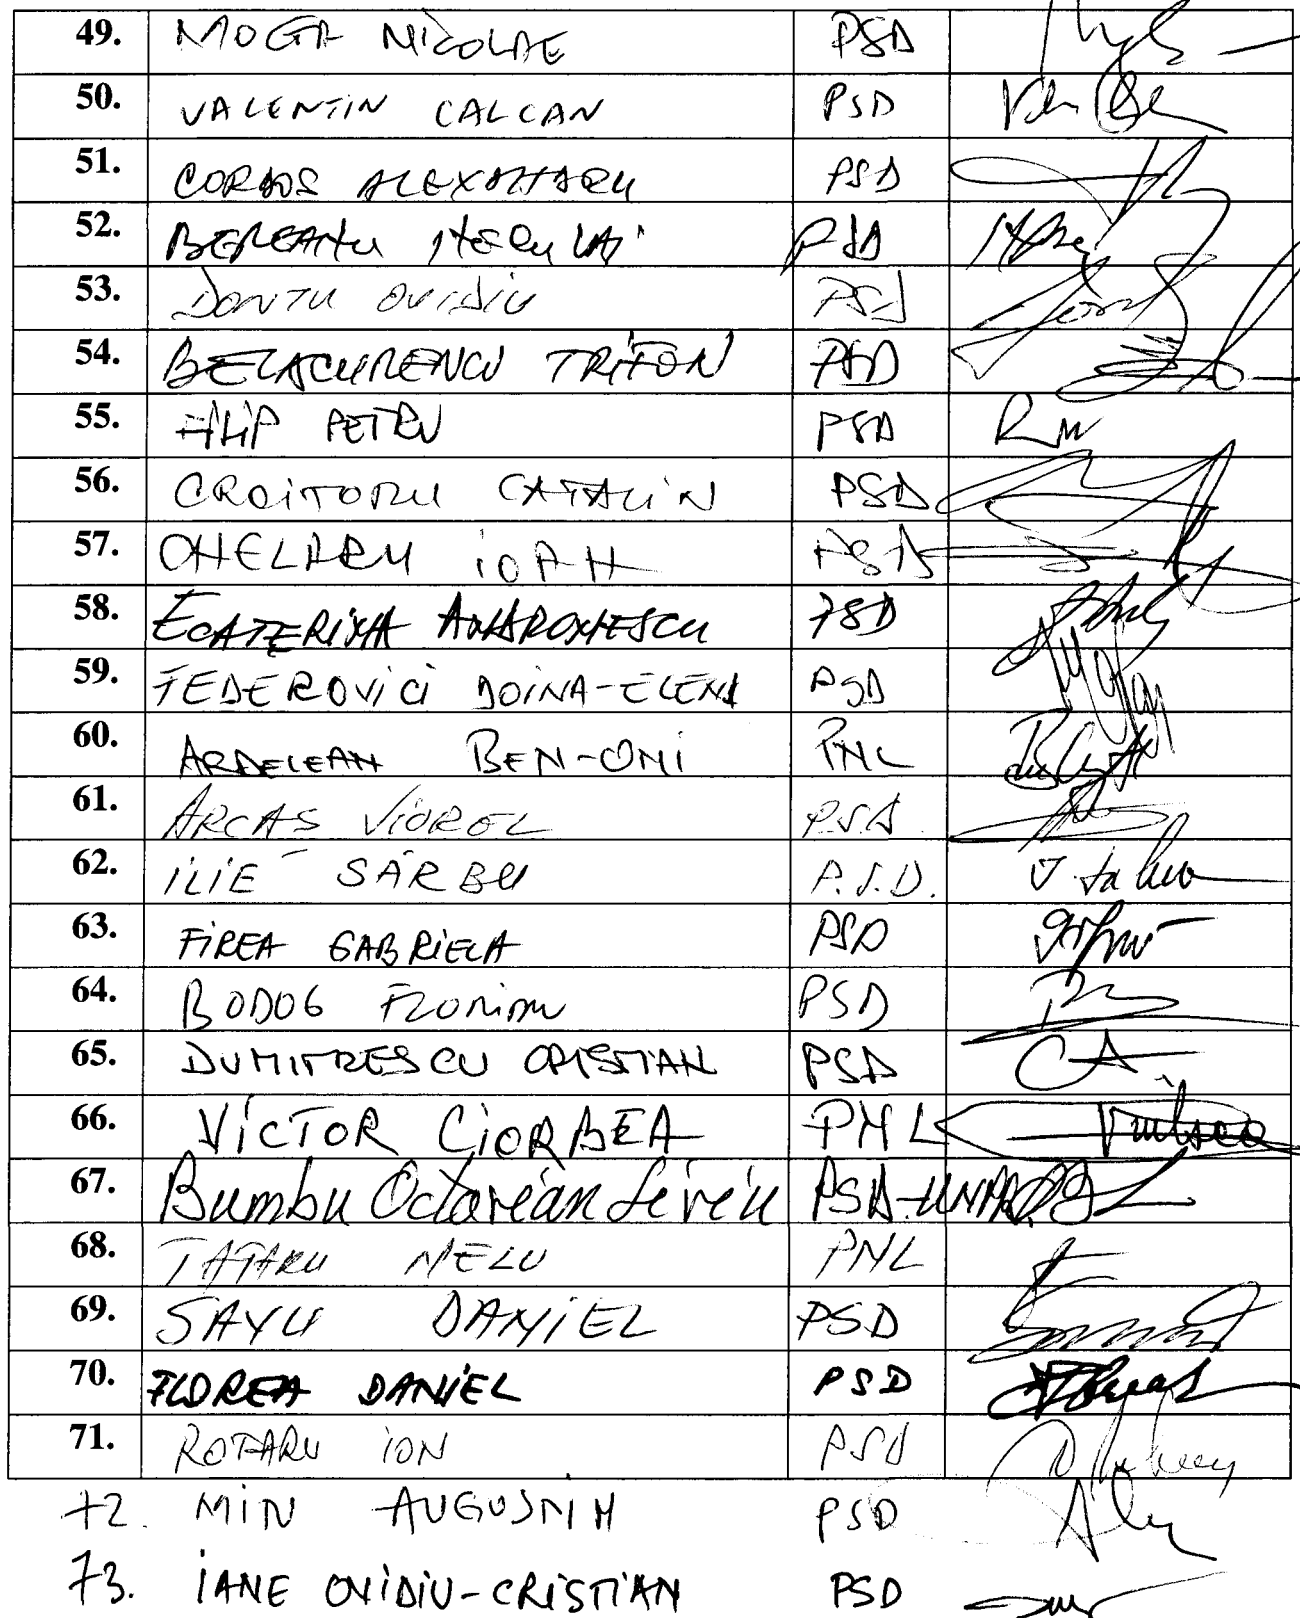 49. MOGA NICOLAE PSD
50. VALENTIN CALCAN PSD
51. CORDOS ALEXANDRU PSD
52. BEREANU NECULAI PSD
53. DONTU OVIDIU PSD
54. BELACURENCU TRIFON PSD
55. FILIP PETRU PSD
56. CROITORU CATALIN PSD
57. CHELARU IOAN PSD
58. ECATERINA ANDRONESCU PSD
59. FEDEROVICI DOINA-ELENA PSD
60. ARDELEAN BEN-ONI PNL
61. ARCAS VIOREL PSD
62. ILIE SÂRBU P.S.D.
63. FIREA GABRIELA PSD
64. BODOG FLORIAN PSD
65. DUMITRESCU CRISTIAN PSD
66. VICTOR CIORBEA PNL
67. Bumbu Octavian Liviu PSD-UNPR
68. TATARU NELU PNL
69. SAVU DANIEL PSD
70. FLOREA DANIEL PSD
71. ROTARU ION PSD
72. MIN AUGUSTIN PSD
73. IANE OVIDIU-CRISTIAN PSD